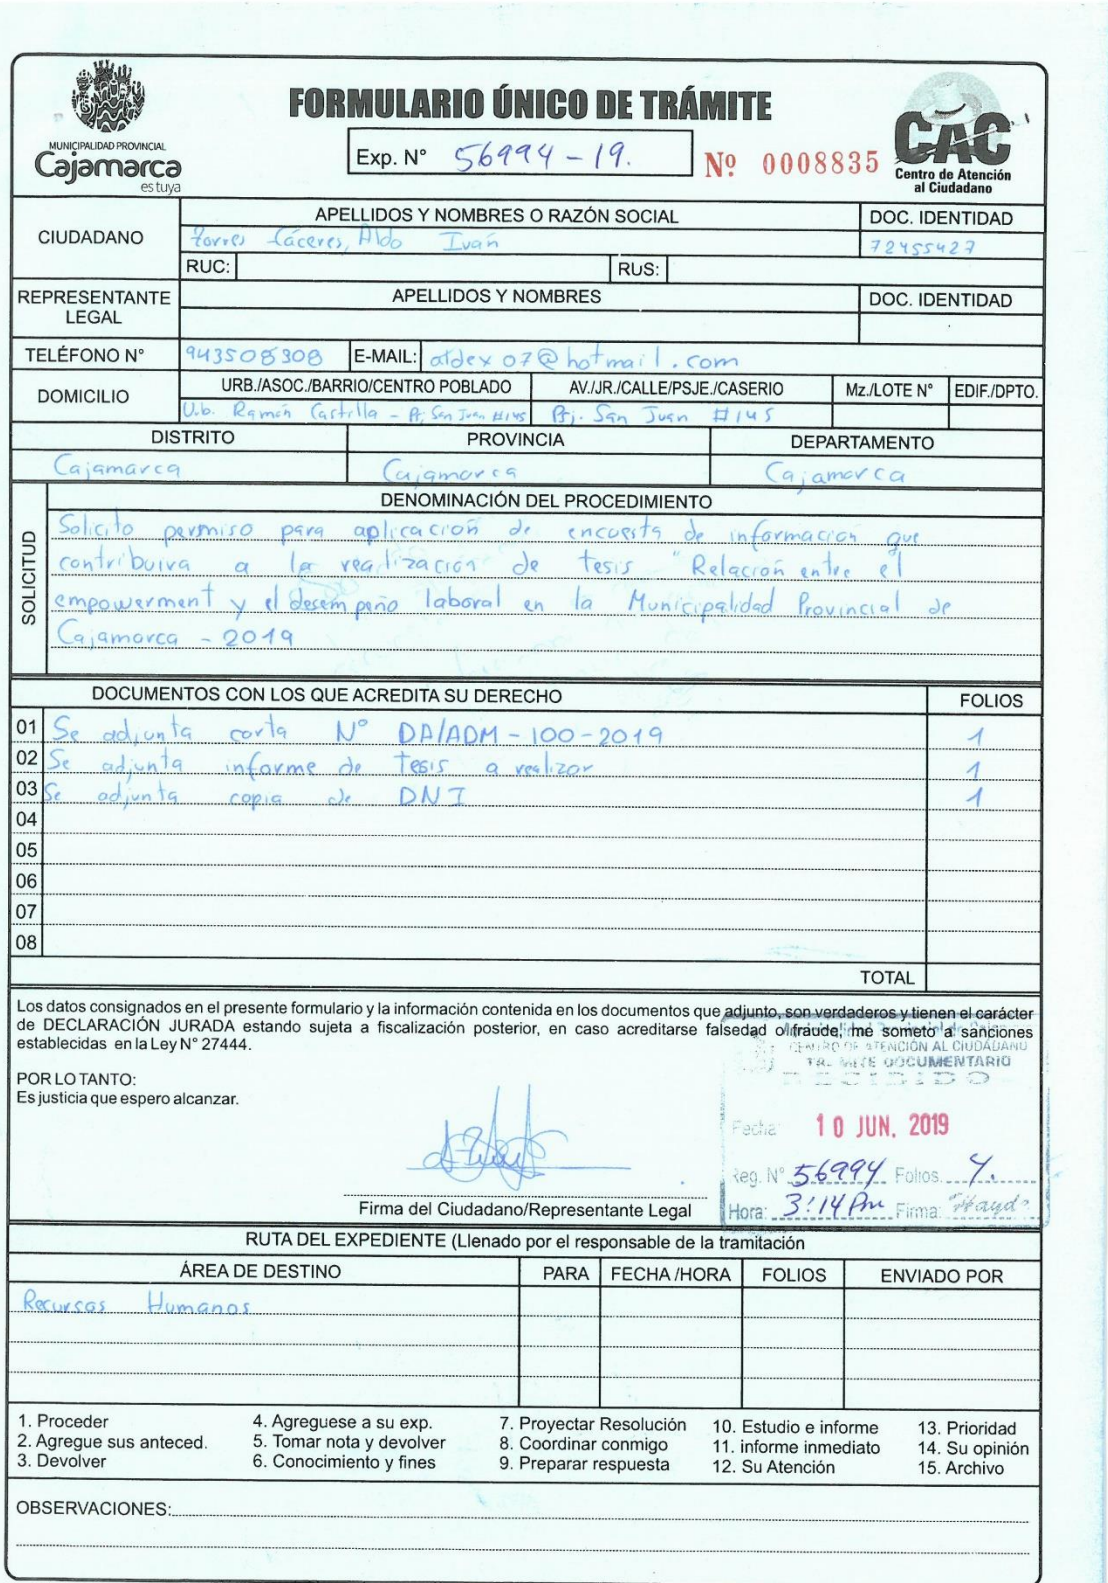 MUNICIPALIDAD PROVINCIAL
Cajamarca
es tuya
FORMULARIO ÚNICO DE TRÁMITE
Exp. N° 56994-19.
Nº 0008835
CAC
Centro de Atención
al Ciudadano
CIUDADANO
APELLIDOS Y NOMBRES O RAZÓN SOCIAL
DOC. IDENTIDAD
Torres Cáceres, Aldo Iván
72455427
RUC:
RUS:
REPRESENTANTE
LEGAL
APELLIDOS Y NOMBRES
DOC. IDENTIDAD
TELÉFONO N°
943508308
E-MAIL:
aldex07@hotmail.com
DOMICILIO
URB./ASOC./BARRIO/CENTRO POBLADO
AV./JR./CALLE/PSJE./CASERIO
Mz./LOTE N°
EDIF./DPTO.
Ub. Ramón Castilla - Pj. San Juan #145
Psj. San Juan #145
DISTRITO
PROVINCIA
DEPARTAMENTO
Cajamarca
Cajamarca
Cajamarca
SOLICITUD
DENOMINACIÓN DEL PROCEDIMIENTO
Solicito permiso para aplicación de encuesta de información que
contribuira a la realización de tesis "Relación entre el
empowerment y el desempeño laboral en la Municipalidad Provincial de
Cajamarca - 2019
DOCUMENTOS CON LOS QUE ACREDITA SU DERECHO
FOLIOS
01 Se adjunta carta N° DA/ADM-100-2019 1
02 Se adjunta informe de tesis a realizar 1
03 Se adjunta copia de DNI 1
04
05
06
07
08
TOTAL
Los datos consignados en el presente formulario y la información contenida en los documentos que adjunto, son verdaderos y tienen el carácter
de DECLARACIÓN JURADA estando sujeta a fiscalización posterior, en caso acreditarse falsedad o fraude, me someto a sanciones
establecidas en la Ley N° 27444.
CENTRO DE ATENCIÓN AL CIUDADANO
TRAMITE DOCUMENTARIO
RECIBIDO
POR LO TANTO:
Es justicia que espero alcanzar.
Fecha: 10 JUN. 2019
Reg. N° 56994 Folios
Hora: 3:14 Pm Firma:
Firma del Ciudadano/Representante Legal
RUTA DEL EXPEDIENTE (Llenado por el responsable de la tramitación
ÁREA DE DESTINO
PARA
FECHA /HORA
FOLIOS
ENVIADO POR
Recursos Humanos
1. Proceder
2. Agregue sus anteced.
3. Devolver
4. Agreguese a su exp.
5. Tomar nota y devolver
6. Conocimiento y fines
7. Proyectar Resolución
8. Coordinar conmigo
9. Preparar respuesta
10. Estudio e informe
11. informe inmediato
12. Su Atención
13. Prioridad
14. Su opinión
15. Archivo
OBSERVACIONES: